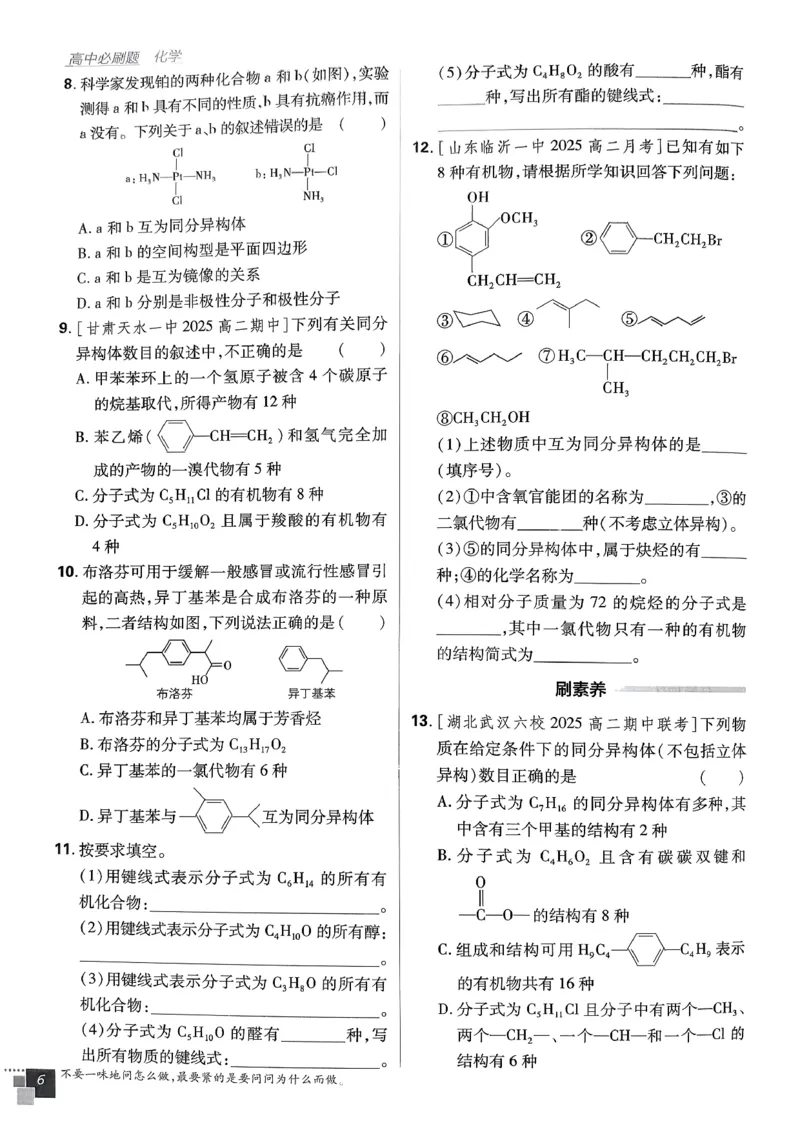 高中必刷题 化学
8. 科学家发现铂的两种化合物 a 和 b(如图),实验
测得 a 和 b 具有不同的性质、b 具有抗癌作用,而
a 没有。下列关于 a、b 的叙述错误的是 (  )
Cl
a: H₃N—Pt—NH₃
Cl
Cl
b: H₃N—Pt—Cl
NH₃
A. a 和 b 互为同分异构体
B. a 和 b 的空间构型是平面四边形
C. a 和 b 是互为镜像的关系
D. a 和 b 分别是非极性分子和极性分子
9. [甘肃天水一中 2025 高二期中]下列有关同分
异构体数目的叙述中,不正确的是 (  )
A. 甲苯苯环上的一个氢原子被含 4 个碳原子
的烷基取代,所得产物有 12 种
B. 苯乙烯( —CH=CH₂ )和氢气完全加
成的产物的一溴代物有 5 种
C. 分子式为 C₅H₁₁Cl 的有机物有 8 种
D. 分子式为 C₅H₁₀O₂ 且属于羧酸的有机物有
4 种
10. 布洛芬可用于缓解一般感冒或流行性感冒引
起的高热,异丁基苯是合成布洛芬的一种原
料,二者结构如图,下列说法正确的是 (  )
O
HO
布洛芬 异丁基苯
A. 布洛芬和异丁基苯均属于芳香烃
B. 布洛芬的分子式为 C₁₃H₁₇O₂
C. 异丁基苯的一氯代物有 6 种
D. 异丁基苯与 互为同分异构体
11. 按要求填空。
(1)用键线式表示分子式为 C₆H₁₄ 的所有有
机化合物:________。
(2)用键线式表示分子式为 C₄H₁₀O 的所有醇:
________。
(3)用键线式表示分子式为 C₃H₈O 的所有有
机化合物:________。
(4)分子式为 C₅H₁₀O 的醛有______种,写
出所有物质的键线式:________。
6 不要一味地问怎么做,最要紧的是要问问为什么而做。
(5)分子式为 C₄H₈O₂ 的酸有______种,酯有
______种,写出所有酯的键线式:________
________。
12. [山东临沂一中 2025 高二月考]已知有如下
8 种有机物,请根据所学知识回答下列问题:
OH
OCH₃
① ② —CH₂CH₂Br
CH₂CH=CH₂
③ ④ ⑤
⑥ ⑦H₃C—CH—CH₂CH₂CH₂Br
CH₃
⑧CH₃CH₂OH
(1)上述物质中互为同分异构体的是______
(填序号)。
(2)①中含氧官能团的名称为______,③的
二氯代物有______种(不考虑立体异构)。
(3)⑤的同分异构体中,属于炔烃的有______
种;④的化学名称为______。
(4)相对分子质量为 72 的烷烃的分子式是
______,其中一氯代物只有一种的有机物
的结构简式为________。
刷素养
13. [湖北武汉六校 2025 高二期中联考]下列物
质在给定条件下的同分异构体(不包括立体
异构)数目正确的是 (  )
A. 分子式为 C₇H₁₆ 的同分异构体有多种,其
中含有三个甲基的结构有 2 种
B. 分子式为 C₄H₆O₂ 且含有碳碳双键和
O
—C—O— 的结构有 8 种
C. 组成和结构可用 H₉C₄— —C₄H₉ 表示
的有机物共有 16 种
D. 分子式为 C₅H₁₁Cl 且分子中有两个—CH₃、
两个—CH₂—、一个—CH—和一个—Cl 的
结构有 6 种